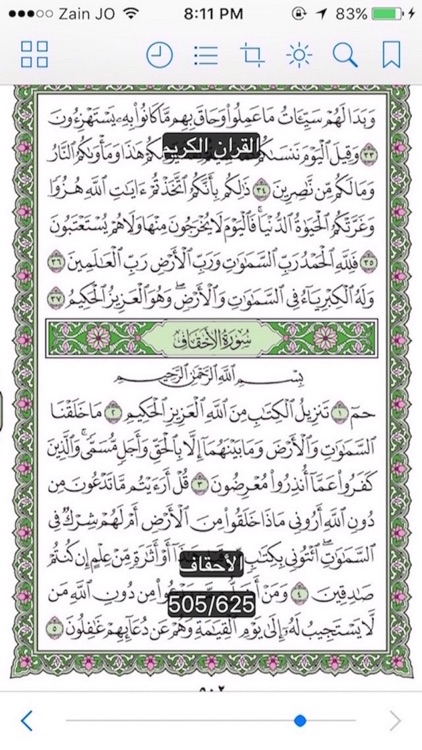 Zain JO 8:11 PM 83%
وَبَدَا لَهُمْ سَيِّئَاتُ مَا عَمِلُوا۟ وَحَاقَ بِهِم مَّا كَانُوا۟ بِهِۦ يَسْتَهْزِءُونَ
القران الكريم
٣٣ وَقِيلَ ٱلْيَوْمَ نَنسَىٰكُمْ هَٰذَا وَمَأْوَىٰكُمُ ٱلنَّارُ
وَمَا لَكُم مِّن نَّٰصِرِينَ ٣٤ ذَٰلِكُم بِأَنَّكُمُ ٱتَّخَذْتُمْ ءَايَٰتِ ٱللَّهِ هُزُوًا
وَغَرَّتْكُمُ ٱلْحَيَوٰةُ ٱلدُّنْيَا ۚ فَٱلْيَوْمَ لَا يُخْرَجُونَ مِنْهَا وَلَا هُمْ يُسْتَعْتَبُونَ
٣٥ فَلِلَّهِ ٱلْحَمْدُ رَبِّ ٱلسَّمَٰوَٰتِ وَرَبِّ ٱلْأَرْضِ رَبِّ ٱلْعَٰلَمِينَ ٣٦
وَلَهُ ٱلْكِبْرِيَآءُ فِى ٱلسَّمَٰوَٰتِ وَٱلْأَرْضِ ۖ وَهُوَ ٱلْعَزِيزُ ٱلْحَكِيمُ ٣٧
سُورَةُ الْأَحْقَافِ
بِسْمِ ٱللَّهِ ٱلرَّحْمَٰنِ ٱلرَّحِيمِ
حمٓ ١ تَنزِيلُ ٱلْكِتَٰبِ مِنَ ٱللَّهِ ٱلْعَزِيزِ ٱلْحَكِيمِ ٢ مَا خَلَقْنَا
ٱلسَّمَٰوَٰتِ وَٱلْأَرْضَ وَمَا بَيْنَهُمَآ إِلَّا بِٱلْحَقِّ وَأَجَلٍ مُّسَمًّى ۚ وَٱلَّذِينَ
كَفَرُوا۟ عَمَّآ أُنذِرُوا۟ مُعْرِضُونَ ٣ قُلْ أَرَءَيْتُم مَّا تَدْعُونَ مِن
دُونِ ٱللَّهِ أَرُونِى مَاذَا خَلَقُوا۟ مِنَ ٱلْأَرْضِ أَمْ لَهُمْ شِرْكٌ فِى
ٱلسَّمَٰوَٰتِ ۖ ٱئْتُونِى بِكِتَٰبٍ أَوْ أَثَٰرَةٍ مِّنْ عِلْمٍ إِن كُنتُمْ
الأحقاف
صَٰدِقِينَ ٤ وَمَنْ مِن دُونِ ٱللَّهِ مَن
505/625
لَّا يَسْتَجِيبُ لَهُۥٓ إِلَىٰ يَوْمِ ٱلْقِيَٰمَةِ وَهُمْ عَن دُعَآئِهِمْ غَٰفِلُونَ ٥
٥٠٢